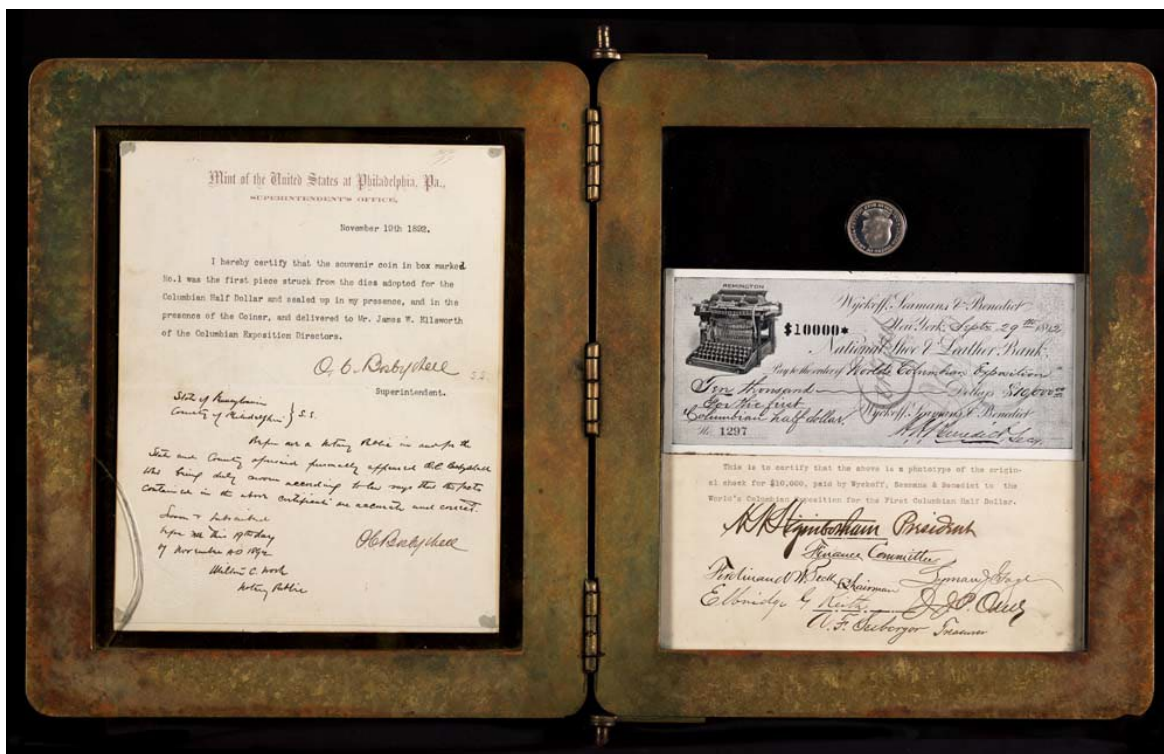 Mint of the United States at Philadelphia, Pa.,
SUPERINTENDENT'S OFFICE,
November 19th 1892.
I hereby certify that the souvenir coin in box marked
No.1 was the first piece struck from the dies adopted for the
Columbian Half Dollar and sealed up in my presence, and in the
presence of the Coiner, and delivered to Mr. James W. Ellsworth
of the Columbian Exposition Directors.
O. C. Bosbyshell
Superintendent.
State of Pennsylvania
County of Philadelphia } S.S.
Before me a Notary Public in and for the
State and County aforesaid personally appeared O.C. Bosbyshell
who being duly sworn according to law says that the facts
contained in the above certificate are accurate and correct.
Sworn & subscribed
before me this 19th day
of November AD 1892
O C Bosbyshell
William C. Work
Notary Public
REMINGTON
Wyckoff, Seamans & Benedict
$10000*
New York, Septr. 29th 1892
National Shoe & Leather Bank
Pay to the order of World's Columbian Exposition
Ten thousand Dollars $10,000.00
For the first
Columbian half dollar.
Wyckoff, Seamans & Benedict
No. 1297
Benedict Secy.
This is to certify that the above is a phototype of the origin-
al check for $10,000, paid by Wyckoff, Seamans & Benedict to the
World's Columbian Exposition for the First Columbian Half Dollar.
H N Higinbotham President
Finance Committee
Ferdinand W. Peck Chairman
Lyman J Gage
Elbridge G Keith
A. F. Seeberger Treasurer